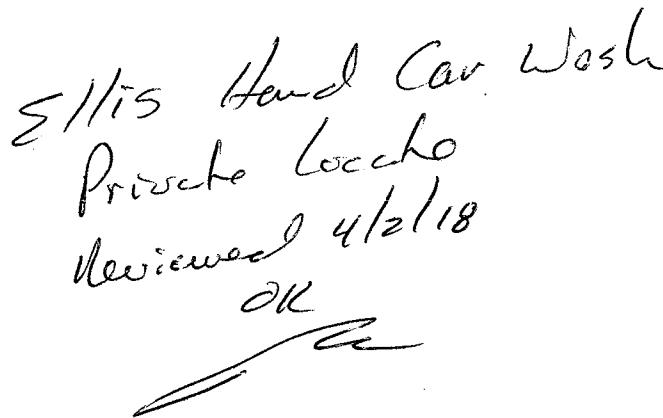 Ellis Hand Car Wash
Private Locate
Reviewed 4/2/18
OK